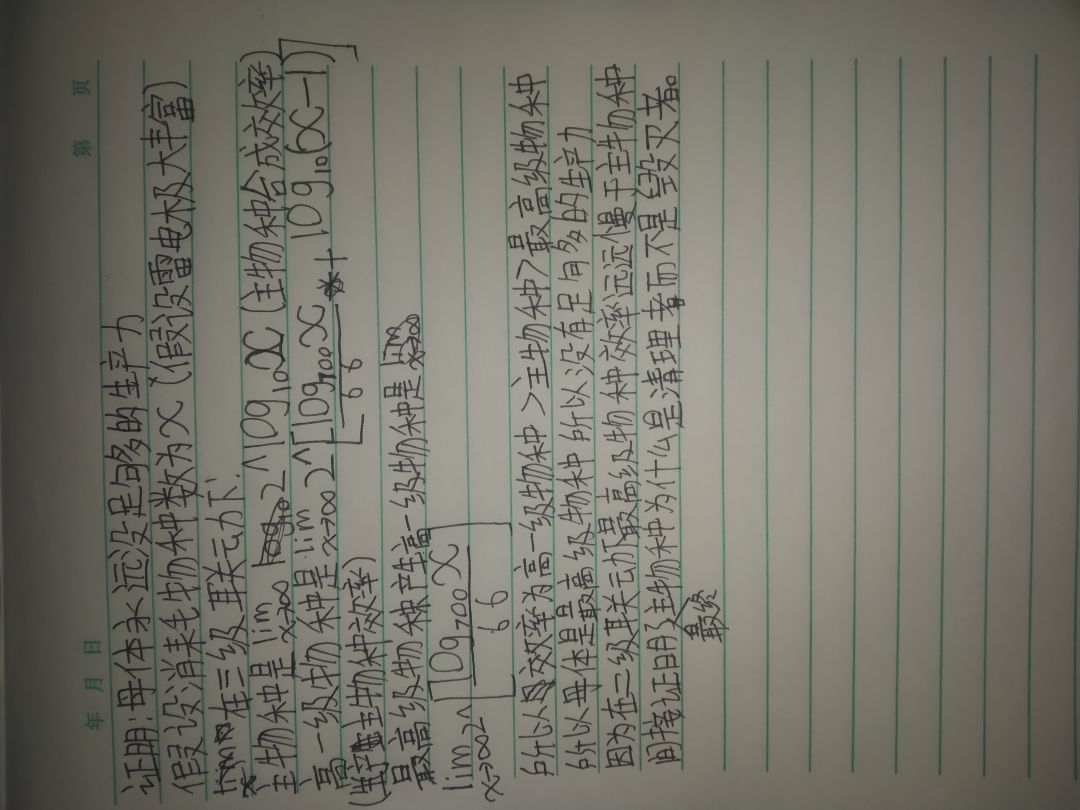 年 月 日 第 页
证明:母体永远没足够多的生产力
假设消耗物种数为x(假设雷电水极大丰富)
在三级联动下
主物种是 lim x→∞ 2^log₁₀x (主物种合成效率)
高一级物种是 lim x→∞ 2^[log₇₀₀x/66 + log₁₀(x-1)]
(主物种效率)
最高级物种产高一级物种是 lim x→∞
lim x→∞ 2^[log₇₀₀x/66]
所以效率为高一级物种>主物种>最高级物种
所以母体是最高级物种所以没有足够多的生产力
因为在三级联动最高级物种效率远远慢于主物种
间接证明了最终主物种为什么是清理者而不是毁灭者。